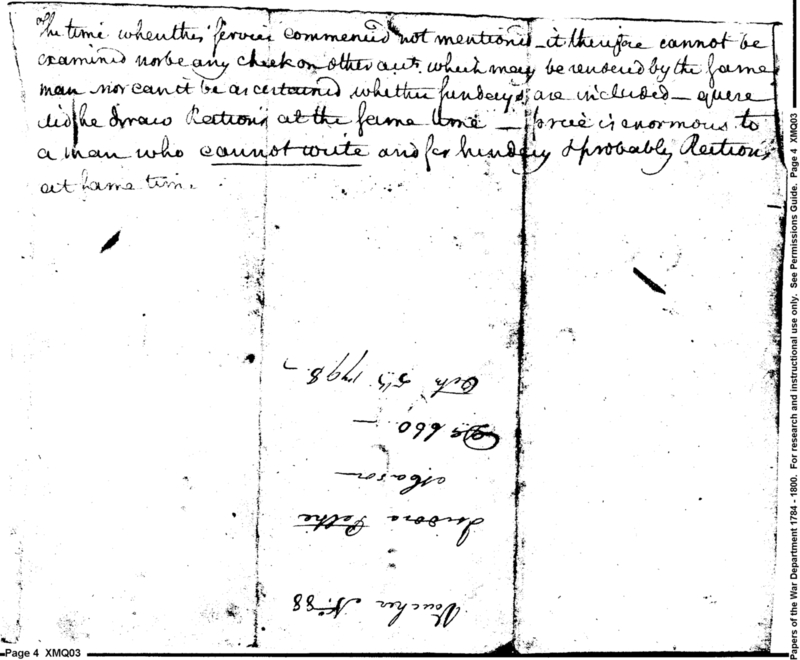 The time when this service commenced not mentioned - it therefore cannot be
examined nor be any check on other acts. which may be rendered by the same
man nor can it be ascertained whether sundays are included - quere
did he draw Rations at the same time - price is enormous to
a man who cannot write and for sundays & probably Rations
at same time.
Voucher No. 88
Isidore Peltie
Mason
Ds 660. -
Octr. 5th 1798 -
Page 4 XMQ03
Papers of the War Department 1784 - 1800. For research and instructional use only. See Permissions Guide. Page 4 XMQ03